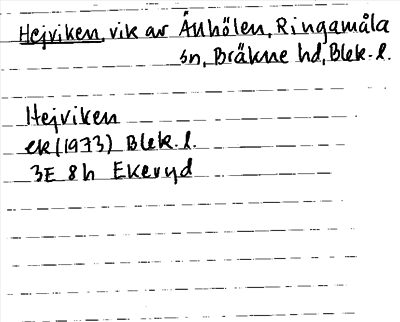 Hejviken, vik av Ånhölen, Ringamåla
sn, Bräkne hd, Blek. l.
Hejviken
ek (1973) Blek. l.
3E 8h Ekeryd